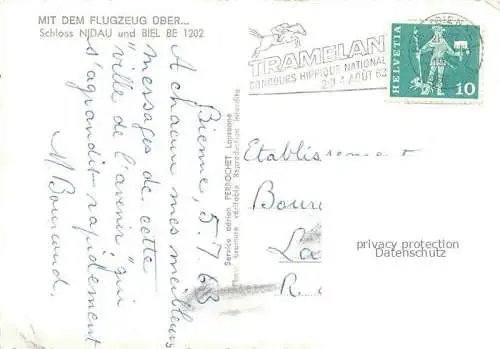 MIT DEM FLUGZEUG ÜBER...
Schloss NIDAU und BIEL BE 1202
Bienne, 5.7.63
A chacun mes meilleurs
messages de cette
"ville de l'avenir" qui
s'agrandit rapidement
M. Bourcand.
Service aérien PERROCHET Lausanne
Photo bromure véritable Reproduction interdite
TRAMELAN
CONCOURS HIPPIQUE NATIONAL
2-3-4 AOÛT 63
BIEN
HELVETIA
10
Etablissement
Bour
La
R
privacy protection
Datenschutz